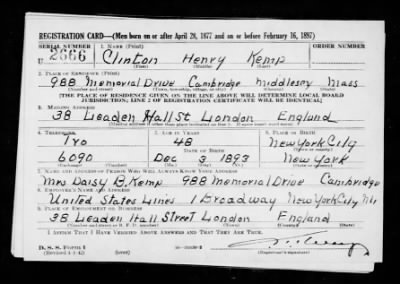 REGISTRATION CARD—(Men born on or after April 28, 1877 and on or before February 16, 1897)
SERIAL NUMBER 1. NAME (Print) ORDER NUMBER
U 2666 Clinton Henry Kemp
(First) (Middle) (Last)
2. PLACE OF RESIDENCE (Print)
988 Memorial Drive Cambridge Middlesex Mass
(Number and street) (Town, township, village, or city) (County) (State)
[THE PLACE OF RESIDENCE GIVEN ON THE LINE ABOVE WILL DETERMINE LOCAL BOARD
JURISDICTION; LINE 2 OF REGISTRATION CERTIFICATE WILL BE IDENTICAL]
3. MAILING ADDRESS
38 Leaden Hall St London England
4. TELEPHONE 5. AGE IN YEARS 6. PLACE OF BIRTH
Tro 48 New York City
DATE OF BIRTH
6090 Dec 3 1893 New York
7. NAME AND ADDRESS OF PERSON WHO WILL ALWAYS KNOW YOUR ADDRESS
Mrs Daisy B. Kemp 988 Memorial Drive Cambridge
8. EMPLOYER'S NAME AND ADDRESS
United States Lines 1 Broadway New York City
9. PLACE OF EMPLOYMENT OR BUSINESS
38 Leaden Hall Street London England
(Number and street or R. F. D. number) (Town) (County) (State)
I AFFIRM THAT I HAVE VERIFIED ABOVE ANSWERS AND THAT THEY ARE TRUE.
D. S. S. Form 1
(Revised 4-1-42) (over)
(Registrant's signature)